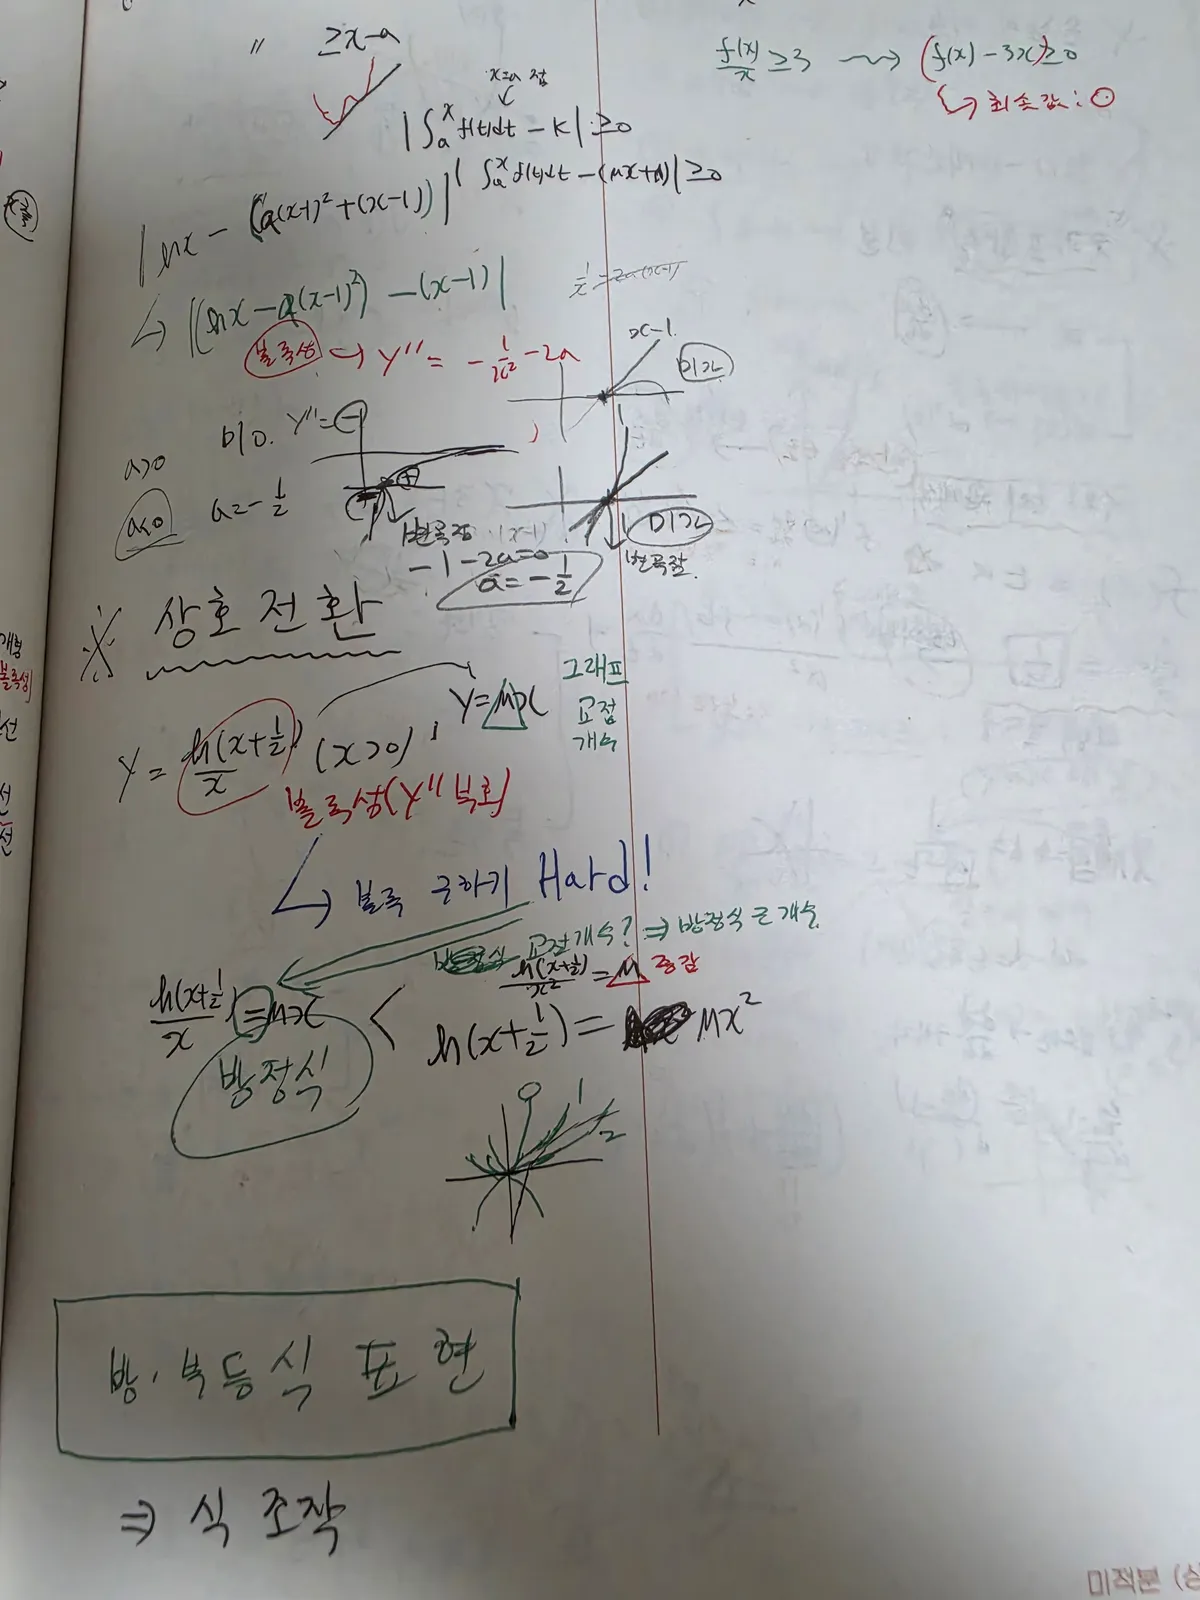 〃 ≥x-a
x=a 접
|∫ₐˣ f(t)dt - k| ≥0
|∫ₐˣ f(t)dt - (mx+n)| ≥0
|lnx - (a(x-1)²+(x-1))|
↳ |(lnx-a(x-1)²) -(x-1)|
1/x = 2a(x-1)
볼록성 → y''= -1/x² -2a
x-1
미가
a>0 미0. y''=⊖
a<0 a=-1/2
변곡점 (x-1)
-1-2a=0
a=-1/2
미가
변곡점.
f(x)/x ≥3 ⇝ (f(x)-3x)≥0
↳ 최솟값: 0
※ 상호전환
y= ln(x+1/2)/x (x>0), y=mx
그래프
교점
개수
볼록성(y'' 부호)
↳ 볼록 구하기 Hard!
교점개수? ⇒ 방정식 근 개수
ln(x+1/2)/x² = m 증감
ln(x+1/2)/x = mx <
ln(x+1/2)= mx²
방정식
방·부등식 표현
⇒ 식 조작
미적분 (상